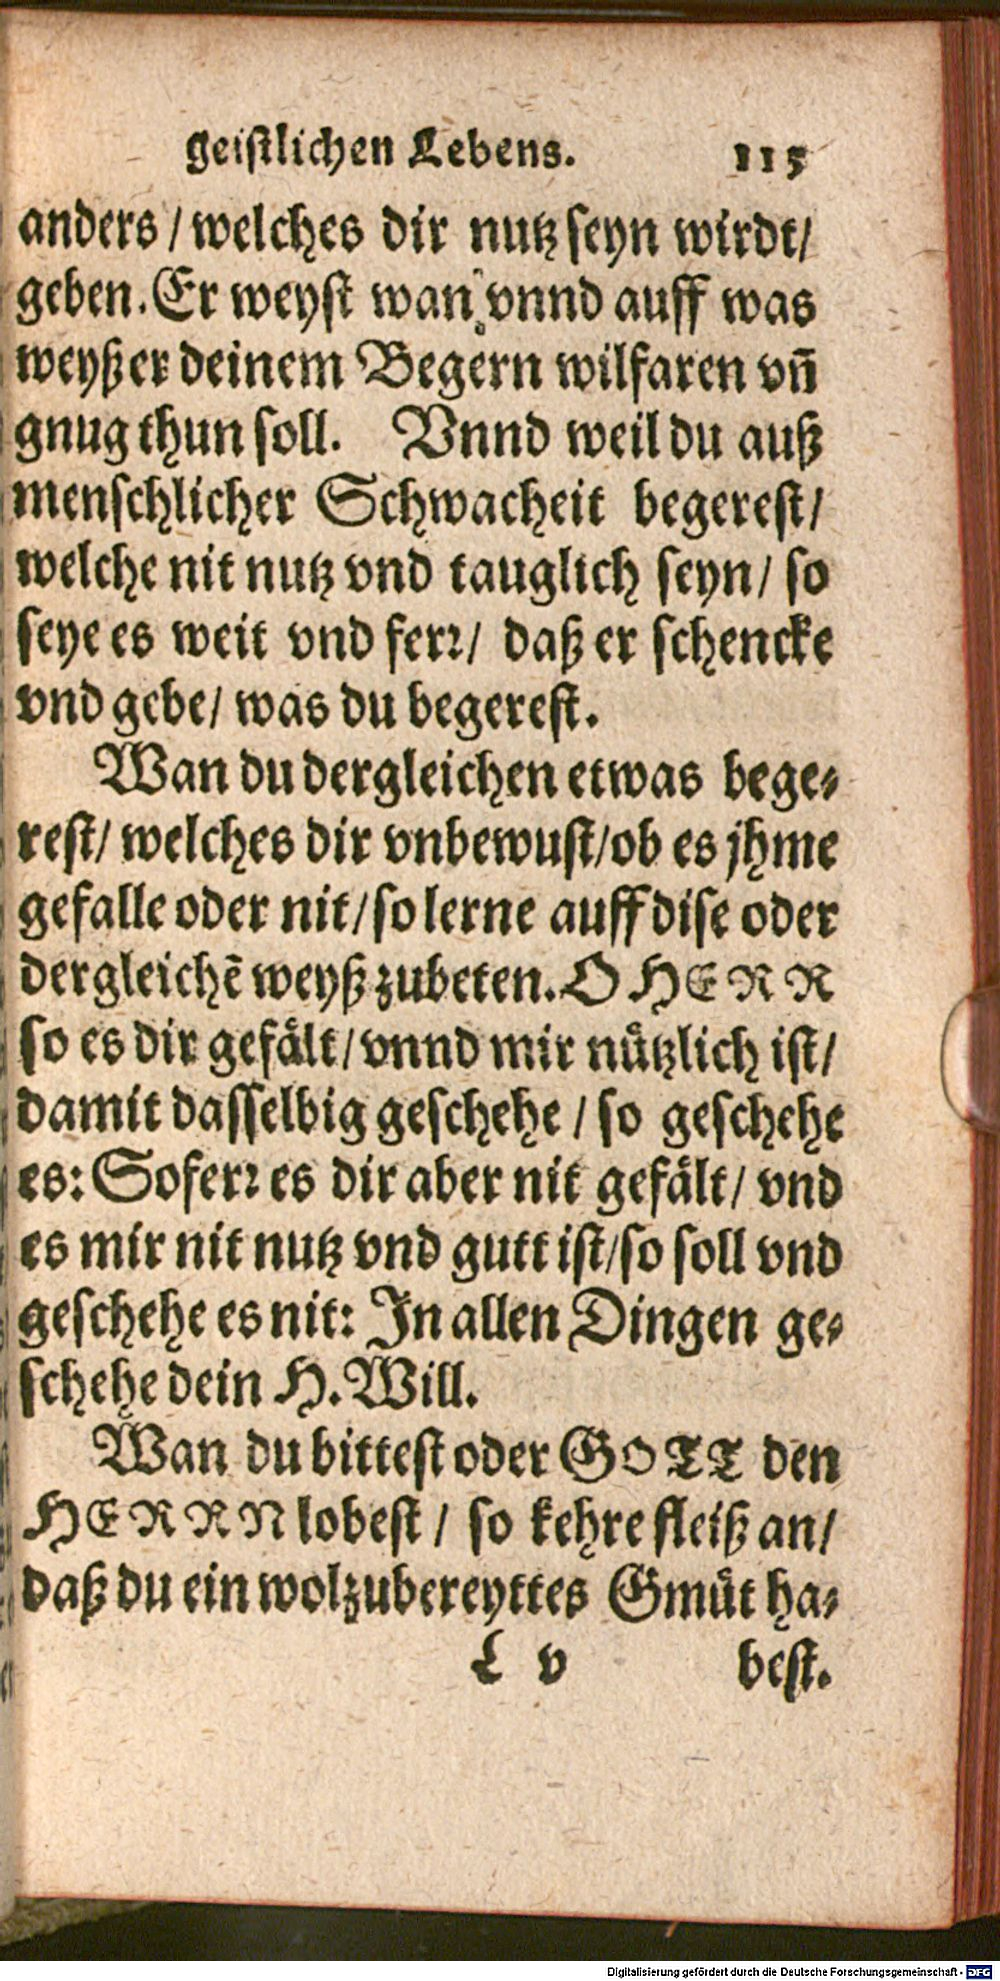 geistlichen Lebens. 115
anders / welches dir nutz seyn wirdt/
geben. Er weyst wañ vnnd auff was
weyß er deinem Begern wilfaren vñ
gnug thun soll. Vnnd weil du auß
menschlicher Schwacheit begerest/
welche nit nutz vnd tauglich seyn/ so
seye es weit vnd ferꝛ/ daß er schencke
vnd gebe/ was du begerest.
Wan du dergleichen etwas bege-
rest/ welches dir vnbewust/ob es jhme
gefalle oder nit/so lerne auff dise oder
dergleichẽ weyß zubeten. O HERR
so es dir gefält/ vnnd mir nützlich ist/
damit dasselbig geschehe / so geschehe
es: Soferꝛ es dir aber nit gefält/ vnd
es mir nit nutz vnd gutt ist/so soll vnd
geschehe es nit: In allen Dingen ge-
schehe dein H. Will.
Wan du bittest oder GOTT den
HERRN lobest / so kehre fleiß an/
daß du ein wolzubereyttes Gmüt ha-
L v best.
Digitalisierung gefördert durch die Deutsche Forschungsgemeinschaft - DFG